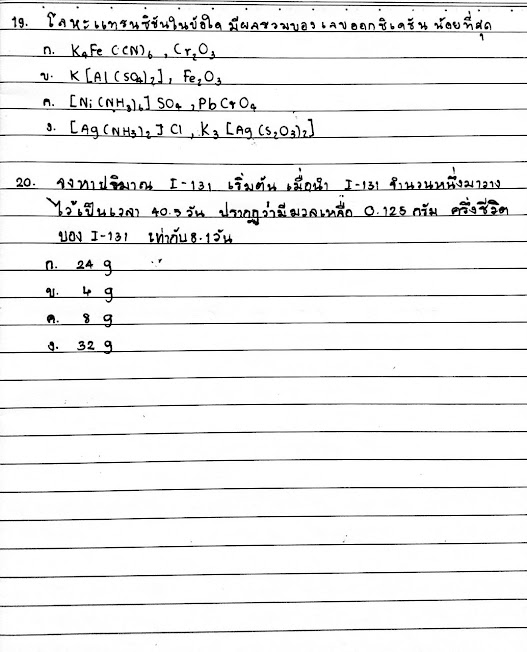 19. โลหะแทรนซิชันในข้อใด มีผลรวมของ เลขออกซิเดชัน น้อยที่สุด
ก. K₄Fe (CN)₆ , Cr₂O₃
ข. K [Al (SO₄)₂] , Fe₂O₃
ค. [Ni (NH₃)₆] SO₄ , PbCrO₄
ง. [Ag (NH₃)₂] Cl , K₃ [Ag (S₂O₃)₂]
20. จงหาปริมาณ I-131 เริ่มต้น เมื่อนำ I-131 จำนวนหนึ่งมาวาง
ไว้เป็นเวลา 40.5 วัน ปรากฏว่ามีมวลเหลือ 0.125 กรัม ครึ่งชีวิต
ของ I-131 เท่ากับ 8.1 วัน
ก. 24 g
ข. 4 g
ค. 8 g
ง. 32 g